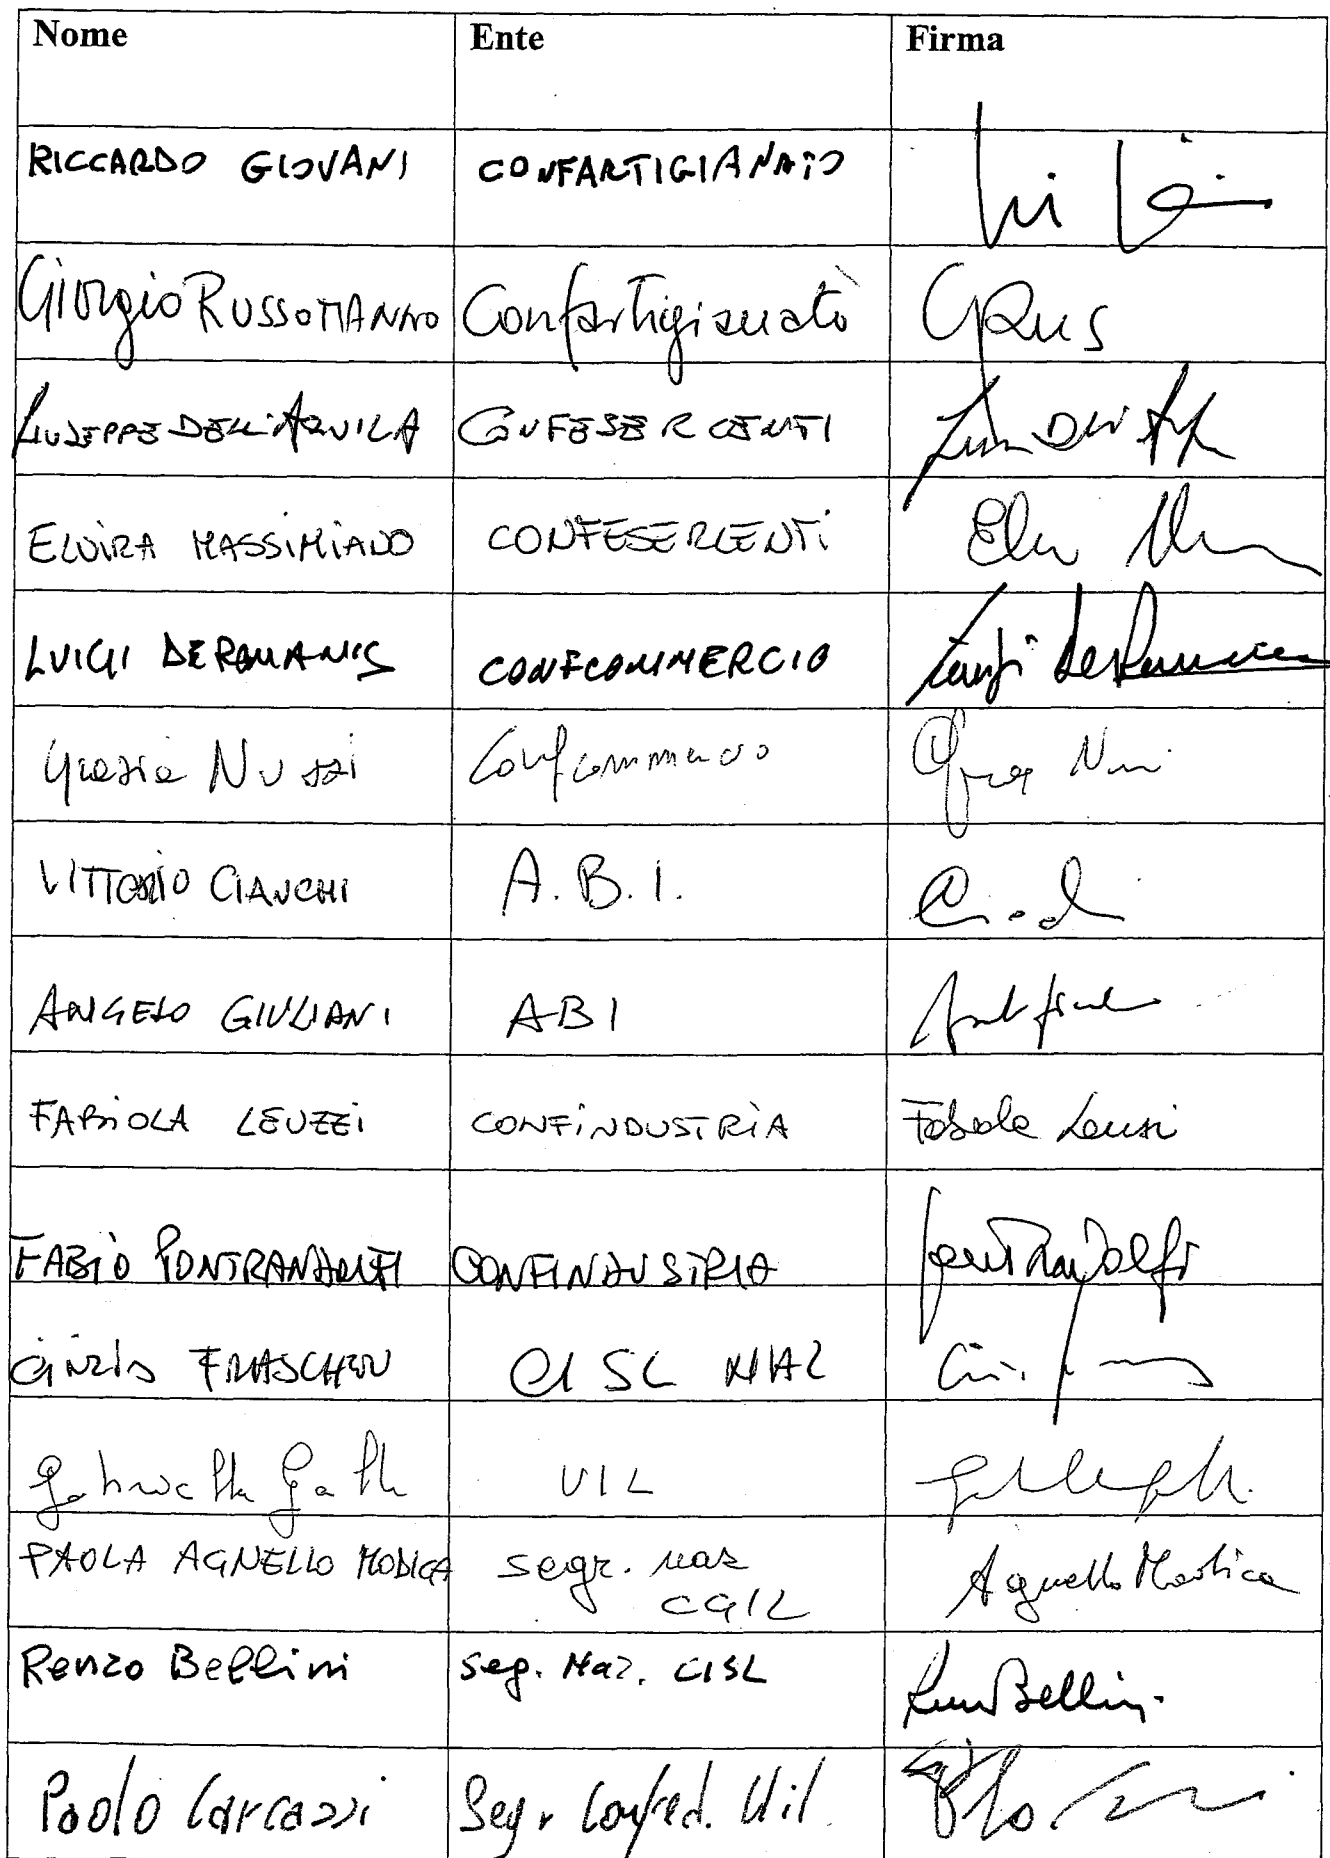 Nome Ente Firma
RICCARDO GIOVANI CONFARTIGIANATO
Giorgio RUSSOMANNO Confartigianato GRus
GIUSEPPE DELL'AQUILA CONFESERCENTI
ELVIRA MASSIMIANO CONFESERCENTI
LUIGI DE ROMANIS CONFCOMMERCIO Luigi De Romanis
Grazia Nuzzi Confcommercio
VITTORIO CIANCHI A.B.I.
ANGELO GIULIANI ABI
FABIOLA LEUZZI CONFINDUSTRIA Fabiola Leuzzi
FABIO PONTRANDOLFI CONFINDUSTRIA Pontrandolfi
CINZIA FRASCHERI CISL NAZ
Gabriella Galli UIL
PAOLA AGNELLO MODICA segr. naz
CGIL Agnello Modica
Renzo Bellini Seg. Naz. CISL Renzo Bellini
Paolo Carcassi Segr Confed. Uil.